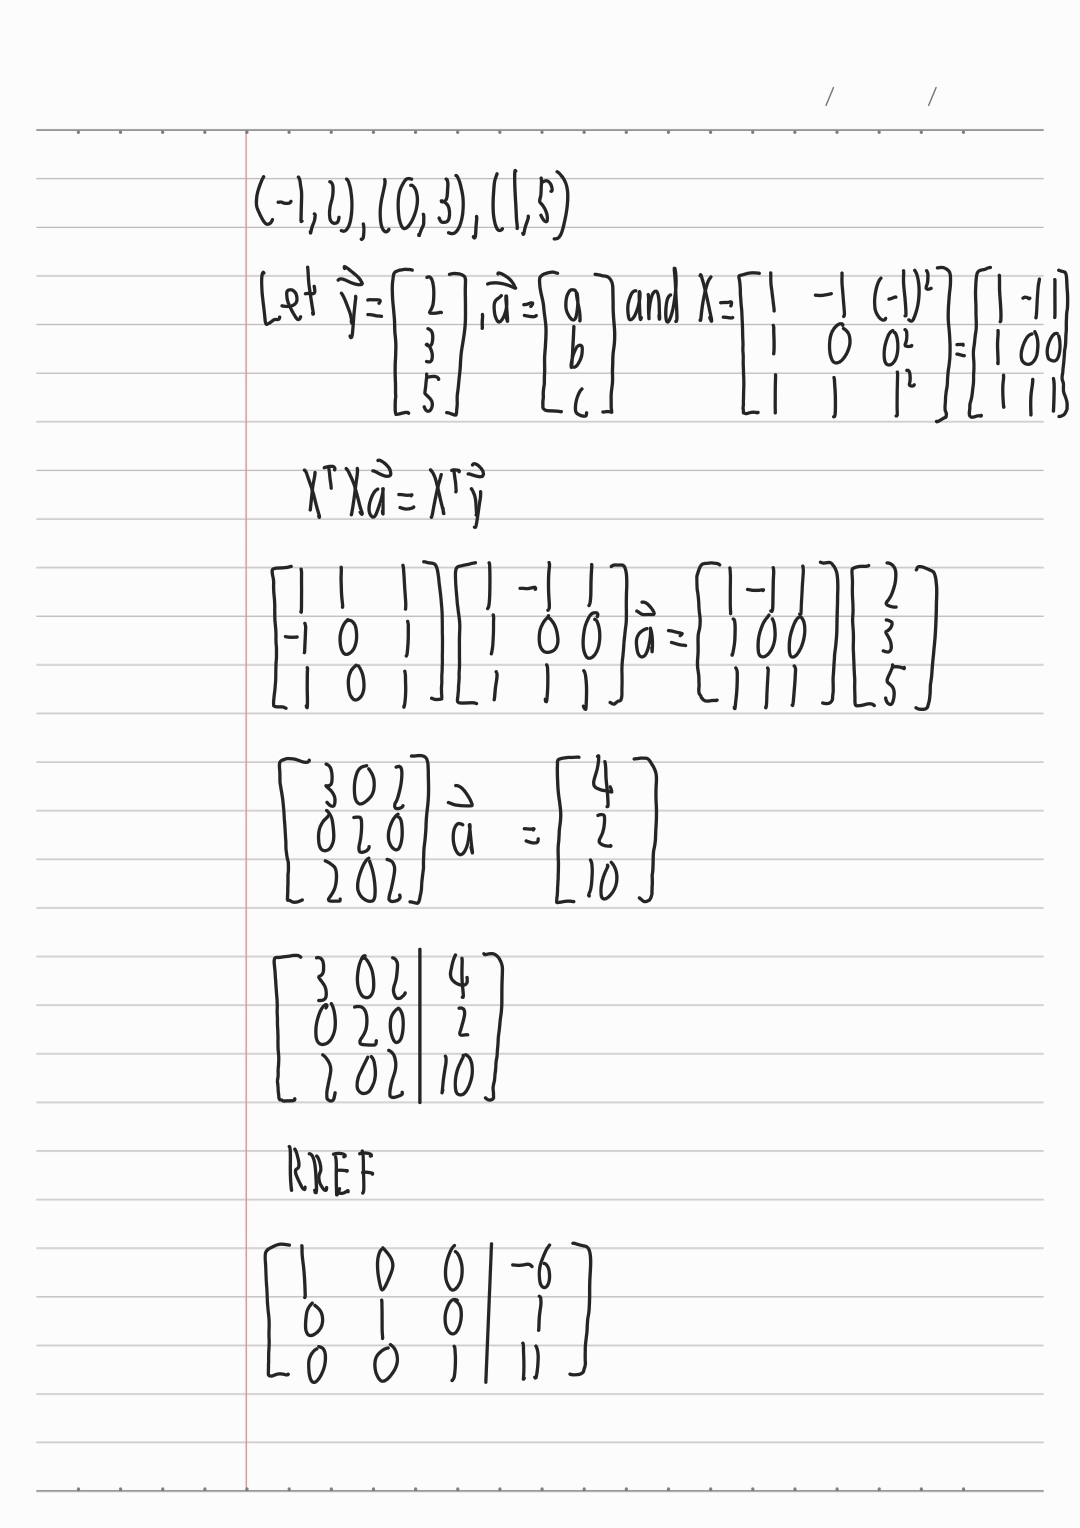 (-1,2),(0,3),(1,5)
Let y⃗=[2 3 5], a⃗=[a b c] and X=[1 -1 (-1)²; 1 0 0²; 1 1 1²]=[1 -1 1; 1 0 0; 1 1 1]
XᵀXa⃗=Xᵀy⃗
[1 1 1; -1 0 1; 1 0 1][1 -1 1; 1 0 0; 1 1 1]a⃗=[1 -1 1; 1 0 0; 1 1 1][2 3 5]
[3 0 2; 0 2 0; 2 0 2]a⃗=[4 2 10]
[3 0 2 | 4; 0 2 0 | 2; 2 0 2 | 10]
RREF
[1 0 0 | -6; 0 1 0 | 1; 0 0 1 | 11]